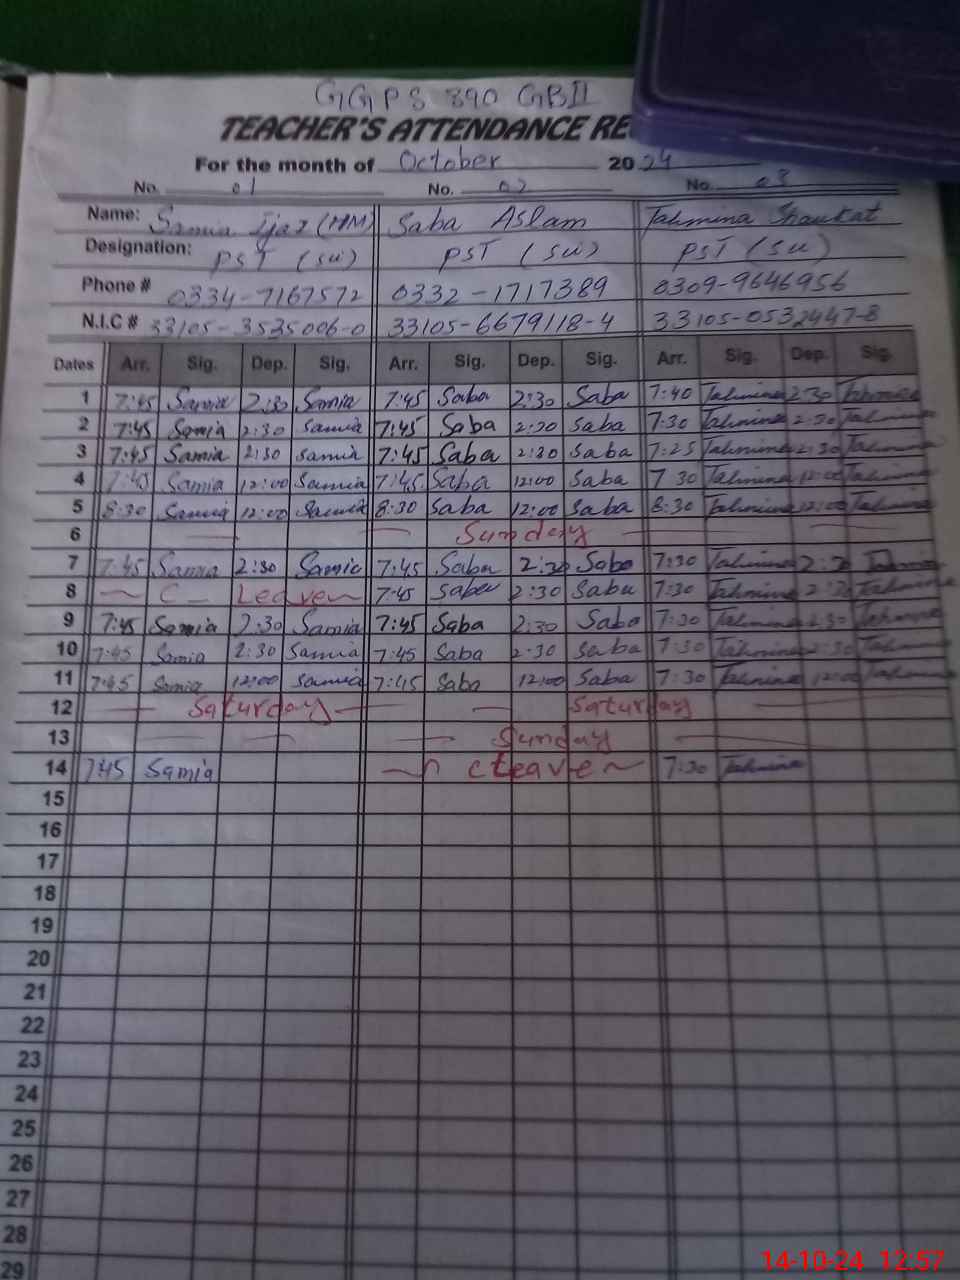 GGPS 890 GBII
TEACHER'S ATTENDANCE RE
For the month of October 2024
No. 01 No. 02 No. 03
Name: Samia Ijaz (HM) Saba Aslam Tahmina Shaukat
Designation: PST (SU) PST (SU) PST (SU)
Phone # 0334-7167572 0332-1717389 0309-9646956
N.I.C # 33105-3535006-0 33105-6679118-4 33105-0532447-8
Dates Arr. Sig. Dep. Sig. Arr. Sig. Dep. Sig. Arr. Sig. Dep. Sig.
1 7:45 Samia 2:30 Samia 7:45 Saba 2:30 Saba 7:40 Tahmina 2:30 Tahmina
2 7:45 Samia 2:30 Samia 7:45 Saba 2:30 Saba 7:30 Tahmina 2:30 Tahmina
3 7:45 Samia 2:30 Samia 7:45 Saba 2:30 Saba 7:25 Tahmina 2:30 Tahmina
4 7:45 Samia 12:00 Samia 7:45 Saba 12:00 Saba 7 30 Tahmina 12:00 Tahmina
5 8:30 Samia 12:00 Samia 8:30 Saba 12:00 Saba 8:30 Tahmina 12:00 Tahmina
6 Sunday
7 7:45 Samia 2:30 Samia 7:45 Saba 2:30 Saba 7:30 Tahmina 2:30 Tahmina
8 C_ Leave 7:45 Saba 2:30 Saba 7:30 Tahmina 2:30 Tahmina
9 7:45 Samia 2:30 Samia 7:45 Saba 2:30 Saba 7:30 Tahmina 2:30 Tahmina
10 7:45 Samia 2:30 Samia 7:45 Saba 2:30 Saba 7:30 Tahmina 2:30 Tahmina
11 7:45 Samia 12:00 Samia 7:45 Saba 12:00 Saba 7:30 Tahmina 12:00 Tahmina
12 Saturday Saturday
13 Sunday
14 7:45 Samia C Leave 7:30 Tahmina
15
16
17
18
19
20
21
22
23
24
25
26
27
28
29
14-10-24 12:57